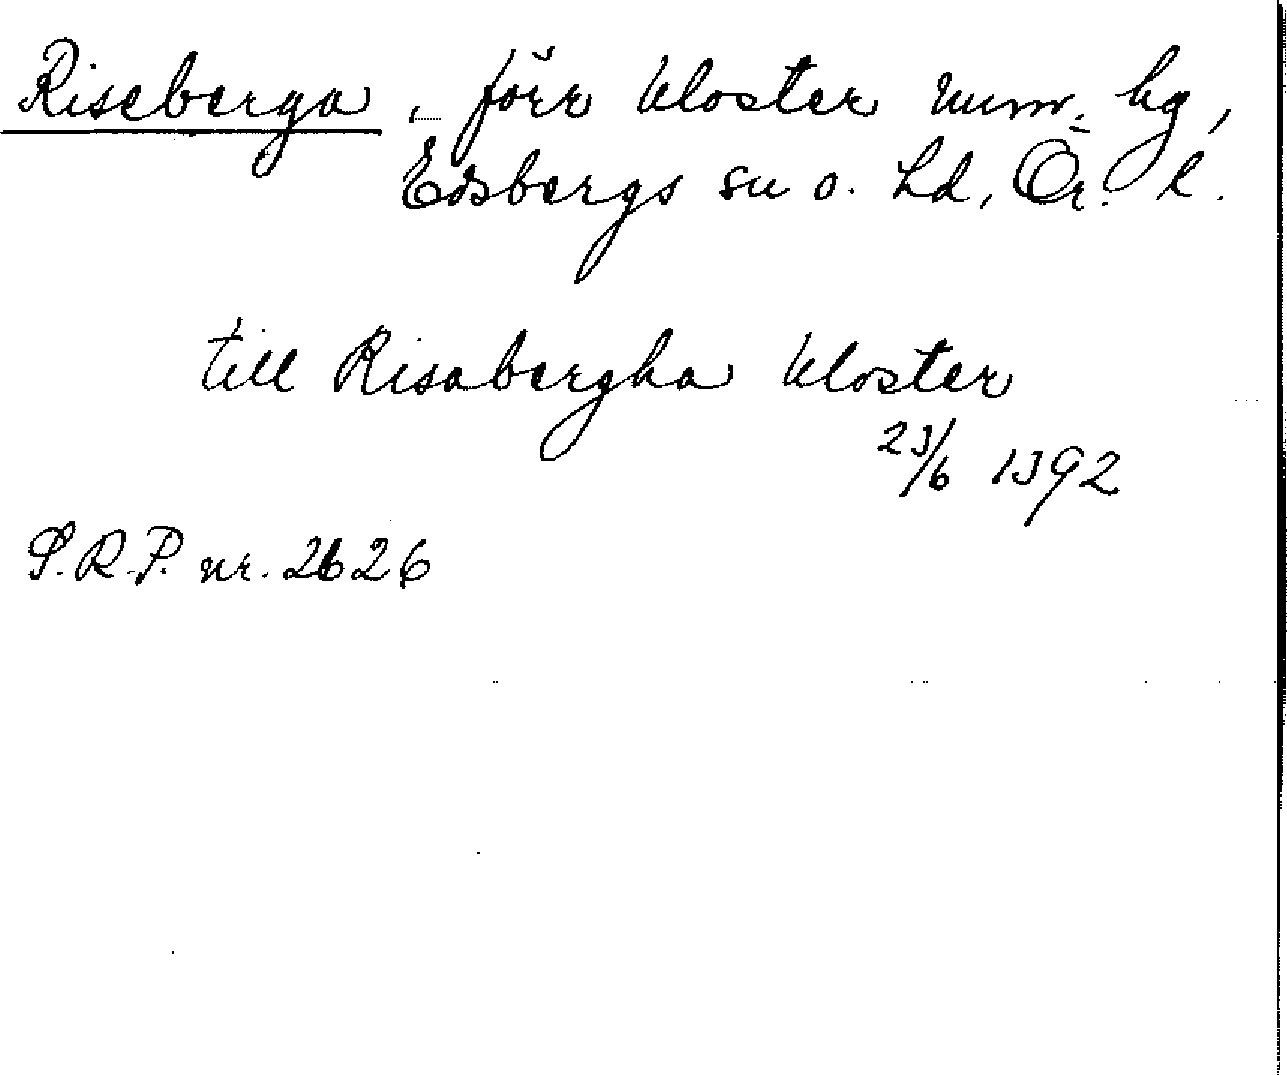 Riseberga, förr kloster num. hg,
Edsbergs sn o. hd, Ör. l.
till Risabergha kloster
23/6 1392
S.R.P. nr. 2626